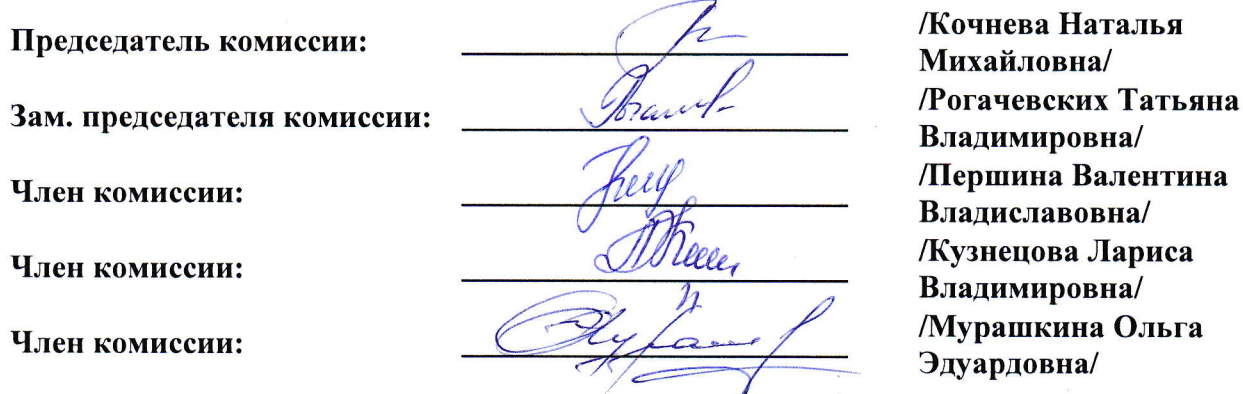 Председатель комиссии:
/Кочнева Наталья
Михайловна/
Зам. председателя комиссии:
/Рогачевских Татьяна
Владимировна/
Член комиссии:
/Першина Валентина
Владиславовна/
Член комиссии:
/Кузнецова Лариса
Владимировна/
Член комиссии:
/Мурашкина Ольга
Эдуардовна/